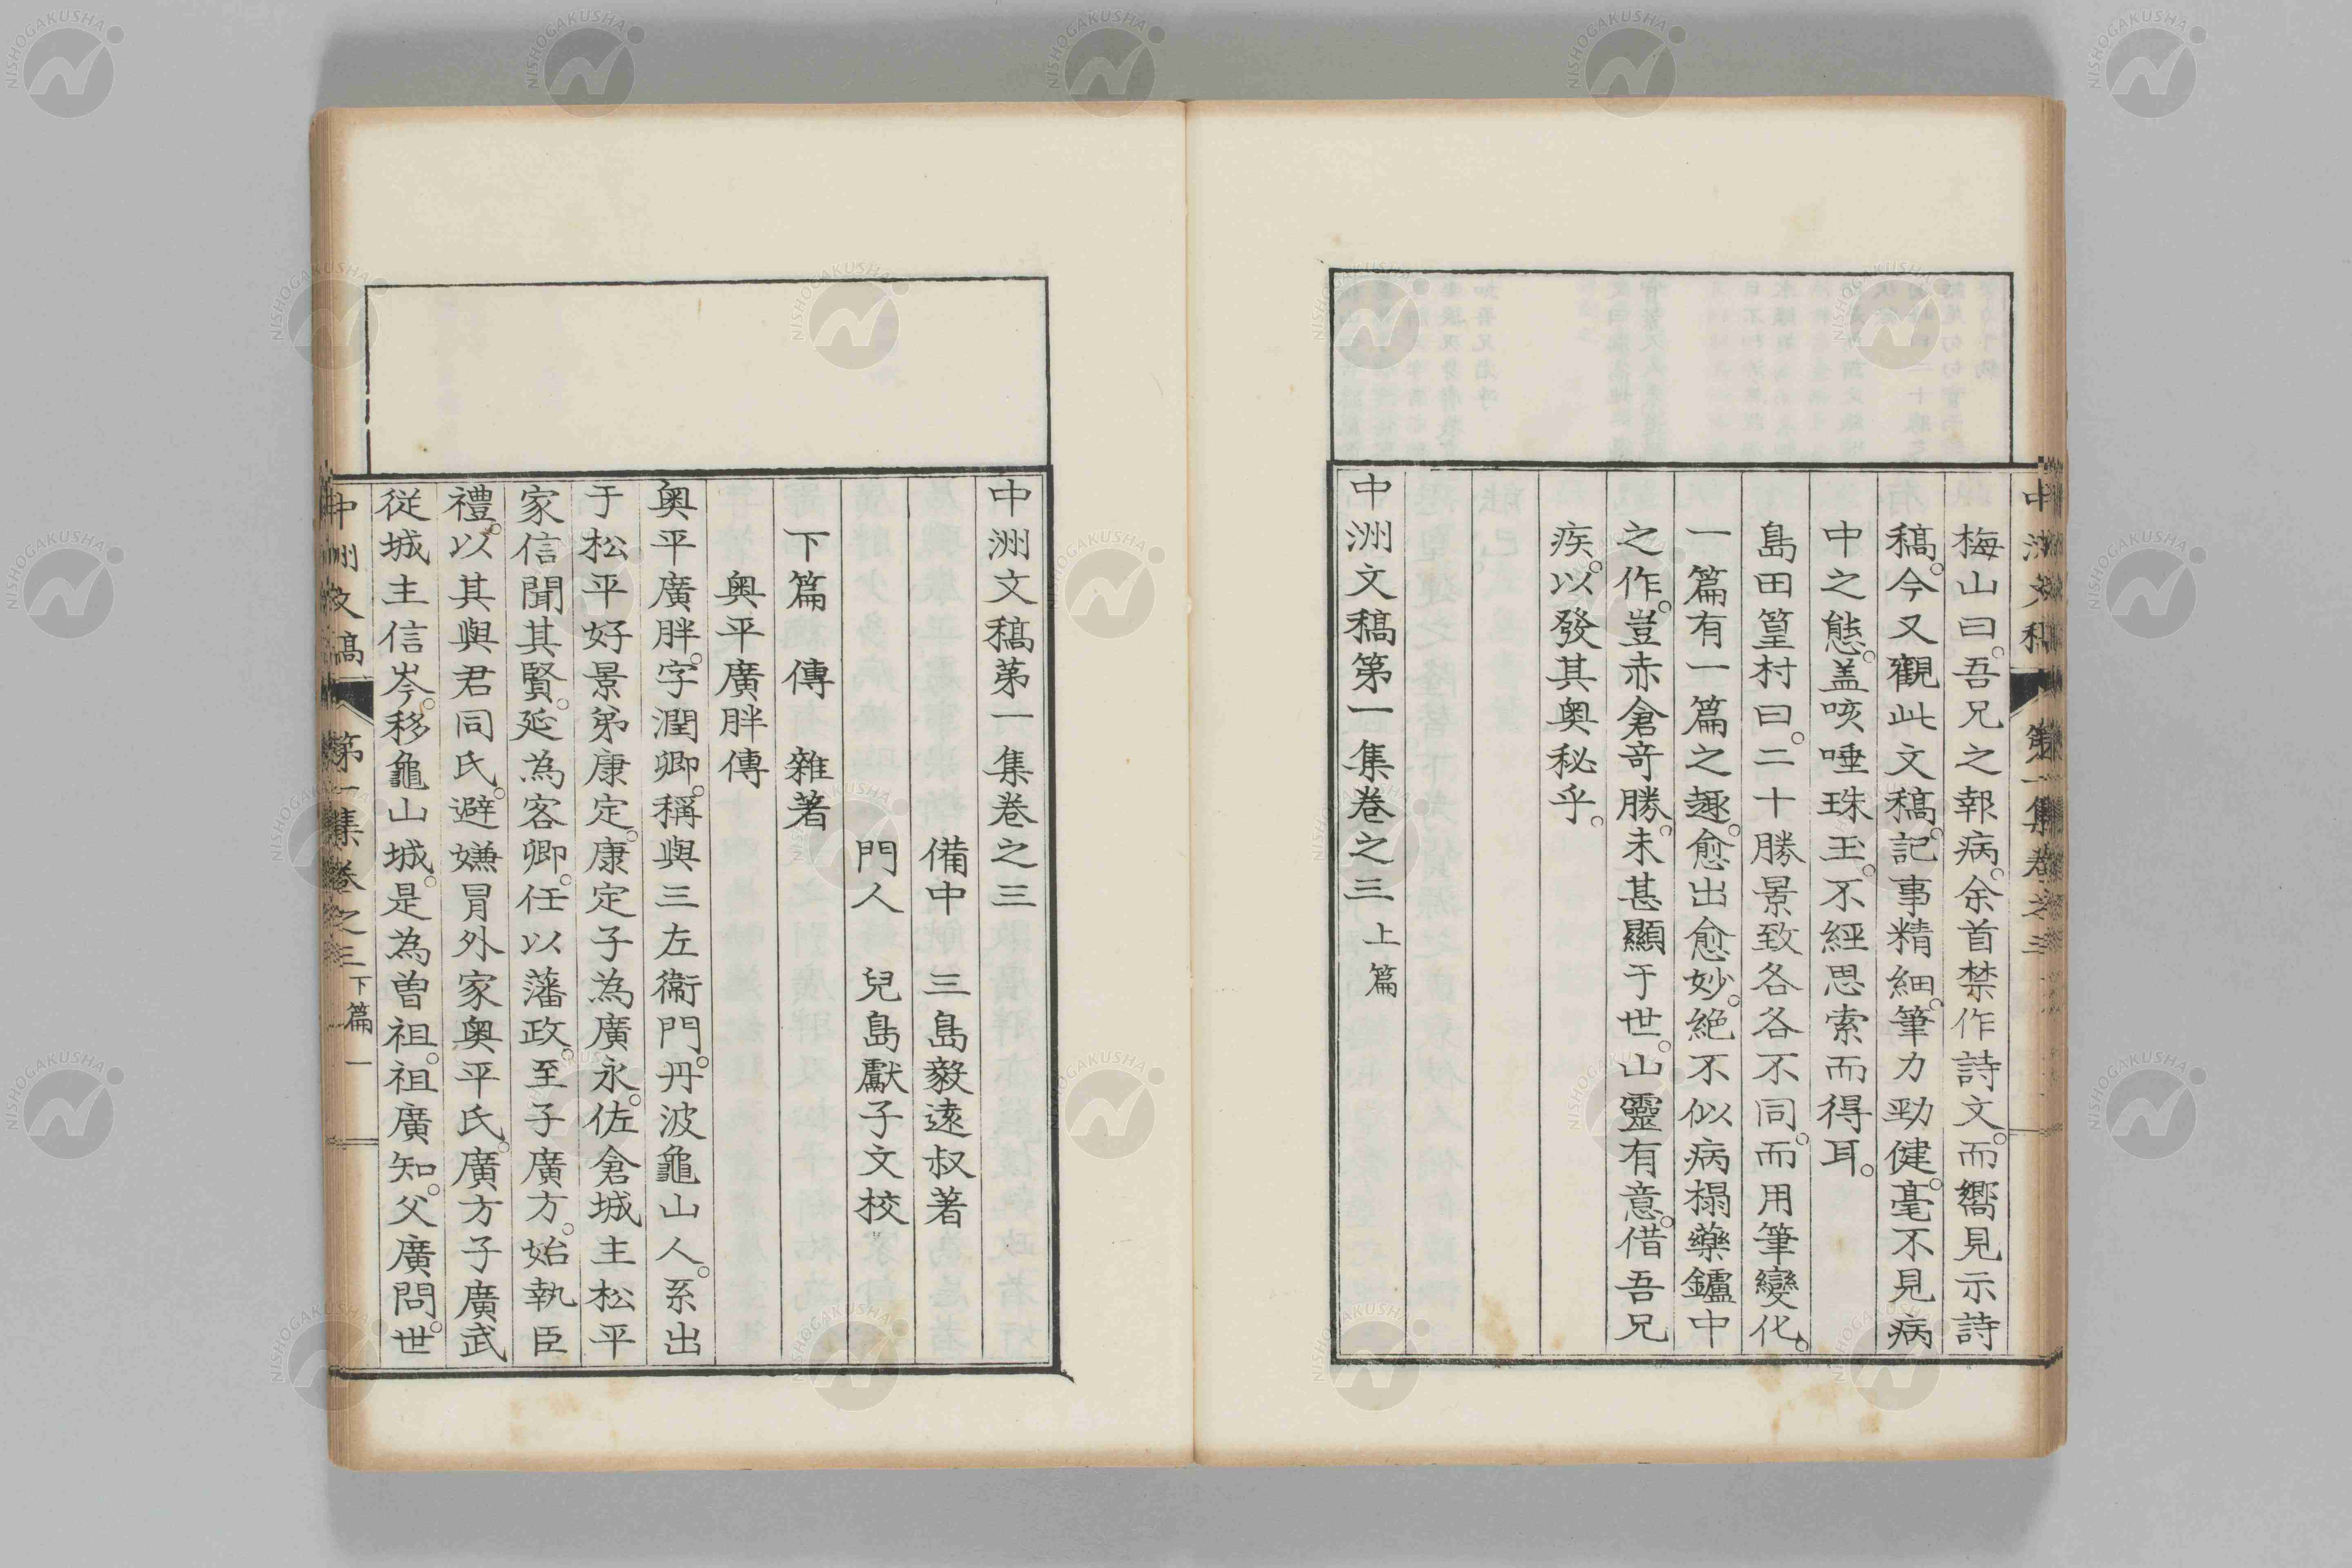 梅山曰。吾兄之報病。余首禁作詩文。而嚮見示詩
稿。今又觀此文稿。記事精細。筆力勁健。毫不見病
中之態。盖咳唾珠玉。不經思索而得耳。
島田篁村曰。二十勝景致各各不同。而用筆變化。
一篇有一篇之趣。愈出愈妙。絶不似病榻藥鑪中
之作。豈赤倉竒勝。未甚顯于世。山靈有意。借吾兄
疾。以發其奥秘乎。
中洲文稿第一集卷之三 上篇
中洲文稿第一集卷之三
備中 三島毅遠叔著
門人 兒島獻子文校
下篇 傳 雜著
奥平廣胖傳
奥平廣胖。字潤卿。稱與三左衞門。丹波龜山人。系出
于松平好景弟康定。康定子為廣永。佐倉城主松平
家信聞其賢。延為客卿。任以藩政。至子廣方。始執臣
禮。以其與君同氏。避嫌冒外家奥平氏。廣方子廣武
從城主信岑。移龜山城。是為曽祖。祖廣知。父廣問。世
中洲文稿 第一集卷之三 下篇 一
NISHOGAKUSHA